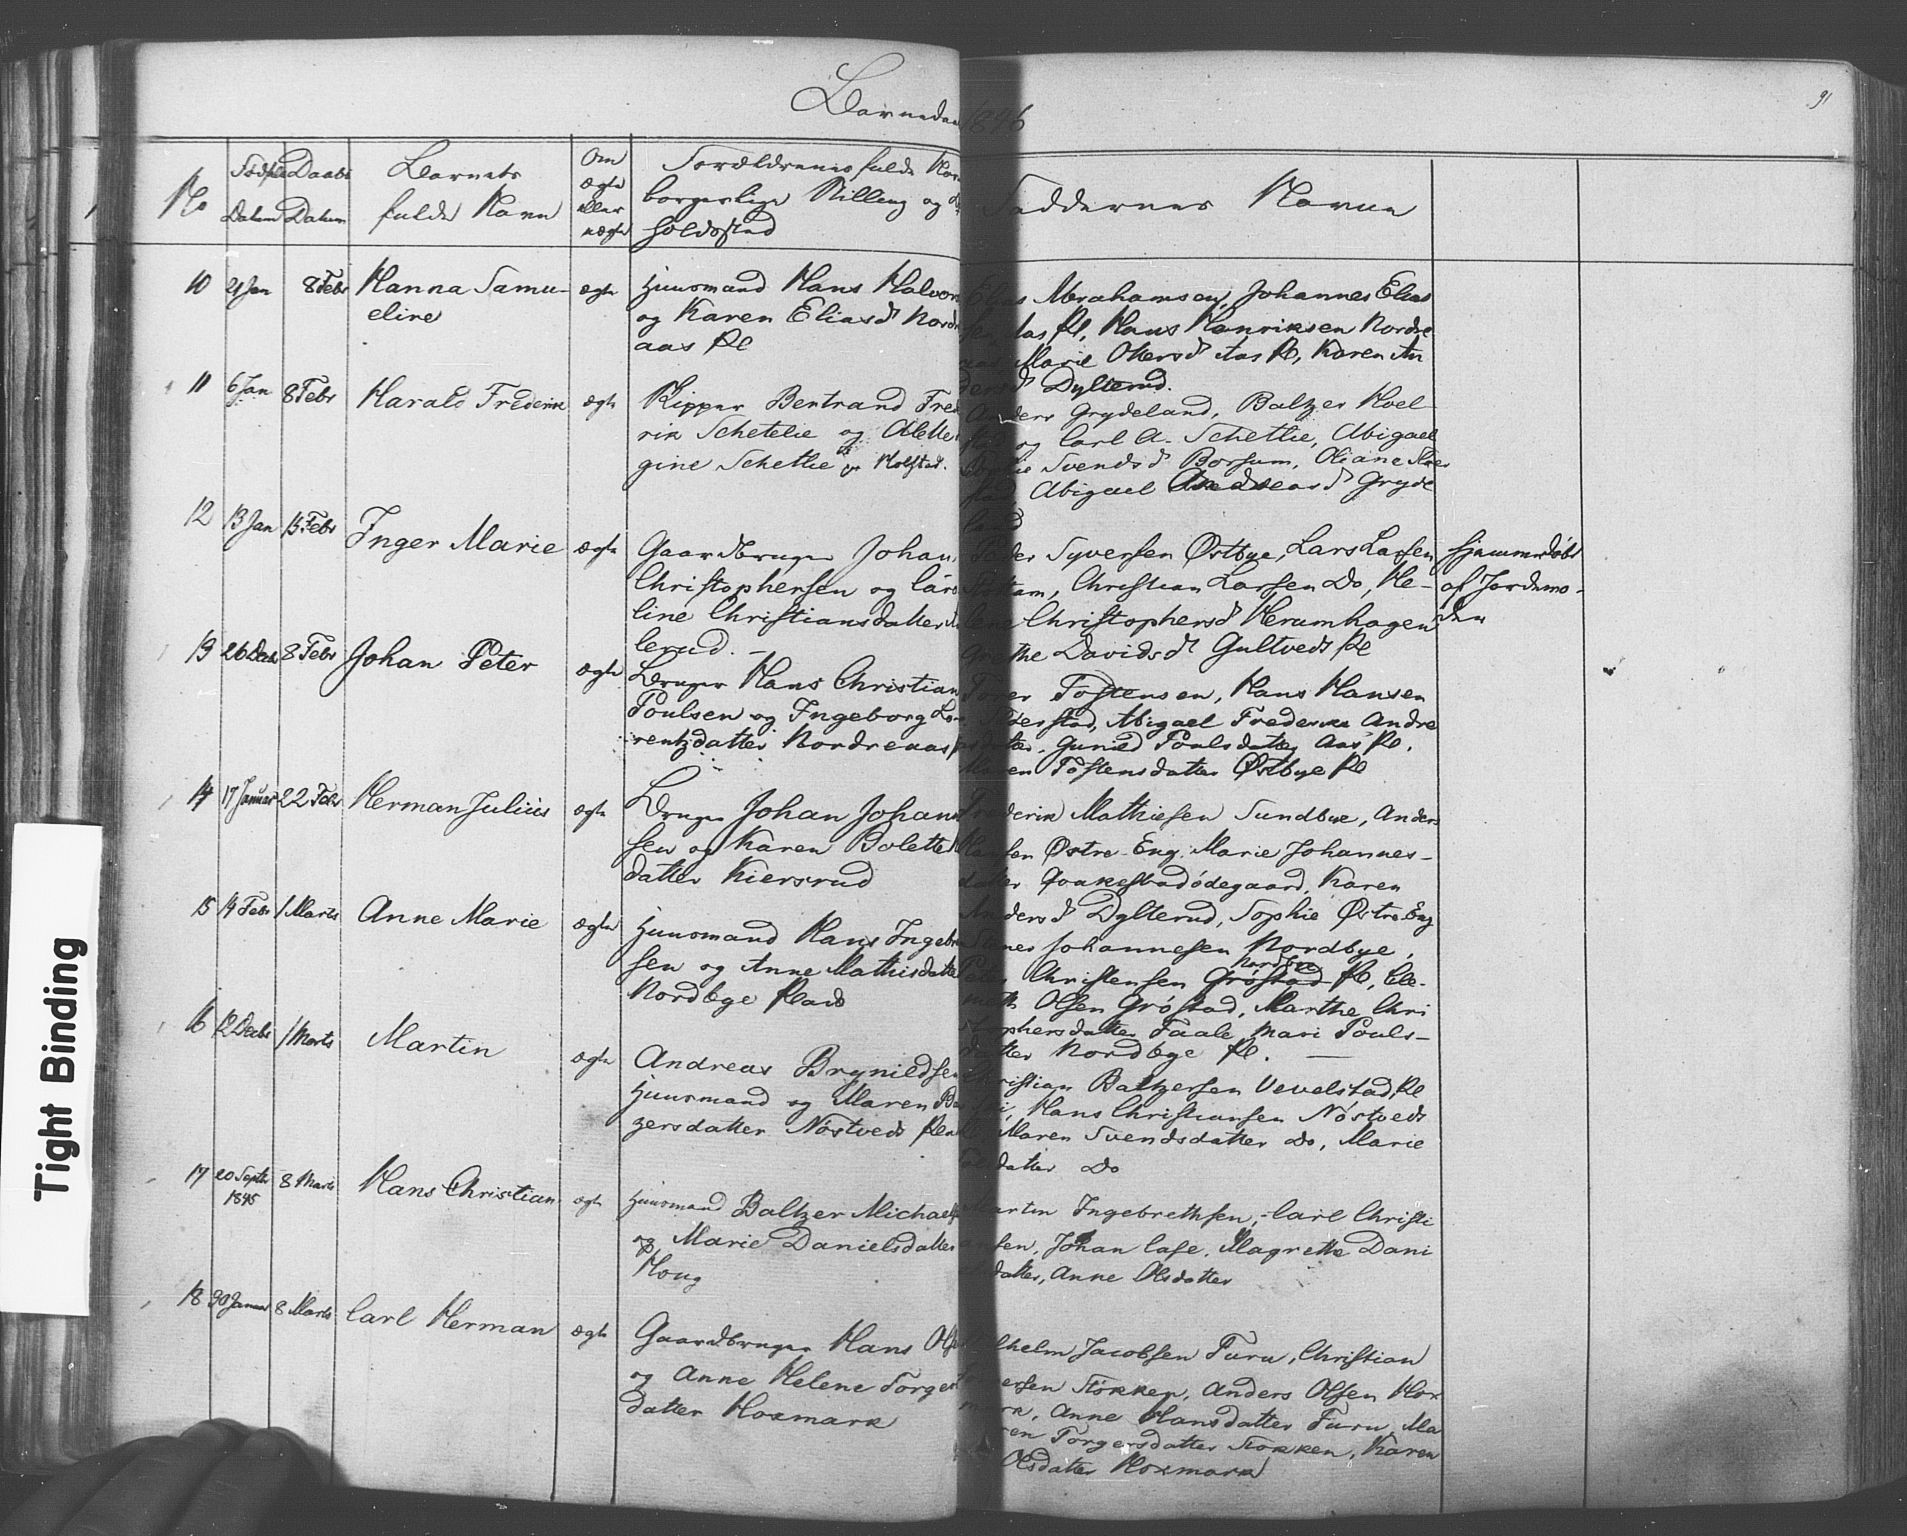 Barnedaab 1846
91
No
Fødsels Datum
Daabs Datum
Barnets fulde Navn
Om ægte eller uægte
Forældrenes fulde Nav
borgerlige Stilling og
Holdssted
Faddernes Navne
10 21 Jan 8 Febr Hanna Samu-
eline
ægte
Huusmand Hans Halvors
og Karen Eliasd Nordre
aas Pl
Elias Abrahamsen, Johannes Elias
sen Aas Pl, Hans Henriksen Nordre
aas Marie Olsersd Aas Pl, Karen An
dersd Dylterud.
11 6 Jan 8 Febr Harald Frederik
ægte
Skipper Bertrand Fred
rik Schetelie og Alette
gine Schetlie Holstad.
Anders Grydeland, Baltzer Hoel-
og Carl A. Schetlie, Abigael
Svendsd Borsum, Oliane
Abigael Andreasd Gryde
land
12 13 Jan 15 Febr Inger Marie
ægte
Gaardbruger Johan
Christophersen og Caro
line Christiansdatter
lerud. -
Peder Syversen Østbye, Lars Larsen
Christian Larsen Do, He-
lene Christophersd Herumhagen
Grethe Davidsd Gultvedt Pl
hjemmedøbt
af Jordemo-
den
13 26 Decbr 8 Febr Johan Peter
ægte
Bruger Hans Christian
Poulsen og Ingeborg Lau
rentzdatter Nordreaas
Torer Tostensen, Hans Hansen
Abigael Frederikke Andre
asdatter, Gunild Poulsdatter Aas Pl,
Maren Tostensdatter Østbye Pl
14 17 Januar 22 Febr Herman Julius
ægte
Bruger Johan Johann
sen og Karen Bolette
datter Kiersrud
Frederik Mathiesen Sundbye, Anders
Hansen Østre-Eng. Marie Johannes-
datter Qvakestadødegaard, Karen
Andersd Dylterud, Sophie Østre-Eng
15 14 Febr 1 Marts Anne Marie
ægte
Huusmand Hans Ingebre
sen og Anne Mathisdatte
Nordbye Plads
Johannesen Nordbye,
Peder Christensen Grøstad Nordbye Pl, Cle-
meth Olsen Grøstad, Marthe Chri
stophersdatter Faale, Mari Pouls-
datter Nordbye Pl. -
16 12 Decbr 1 Marts Martin
ægte
Andreas Brynildsen
Huusmand og Maren Ba
zersdatter Nøstvedt Pl
Christian Baltzersen Vevelstad, Pl
Hans Christiansen Nøstvedt
Maren Svendsdatter Do, Marie
datter Do
17 20 Septbr 1845 8 Marts Hans Christian
ægte
Huusmand Baltzer Michaels
og Marie Danielsdatter
Houg
Martin Ingebrethsen, Carl Christi
ansen, Johan Case, Magrethe Dani
elsdatter, Anne Olsdatter
18 30 Januar 8 Marts Carl Herman
ægte
Gaardbruger Hans Ols
og Anne Helene Torgers
datter Hoxmark
Wilhelm Jacobsen Furu, Christian
ersen Støkken, Anders Olsen Hox
mark, Anne Hansdatter Furu, Ma
ren Torgersdatter Stokken, Karen
Olsdatter Hoxmark
Tight Binding